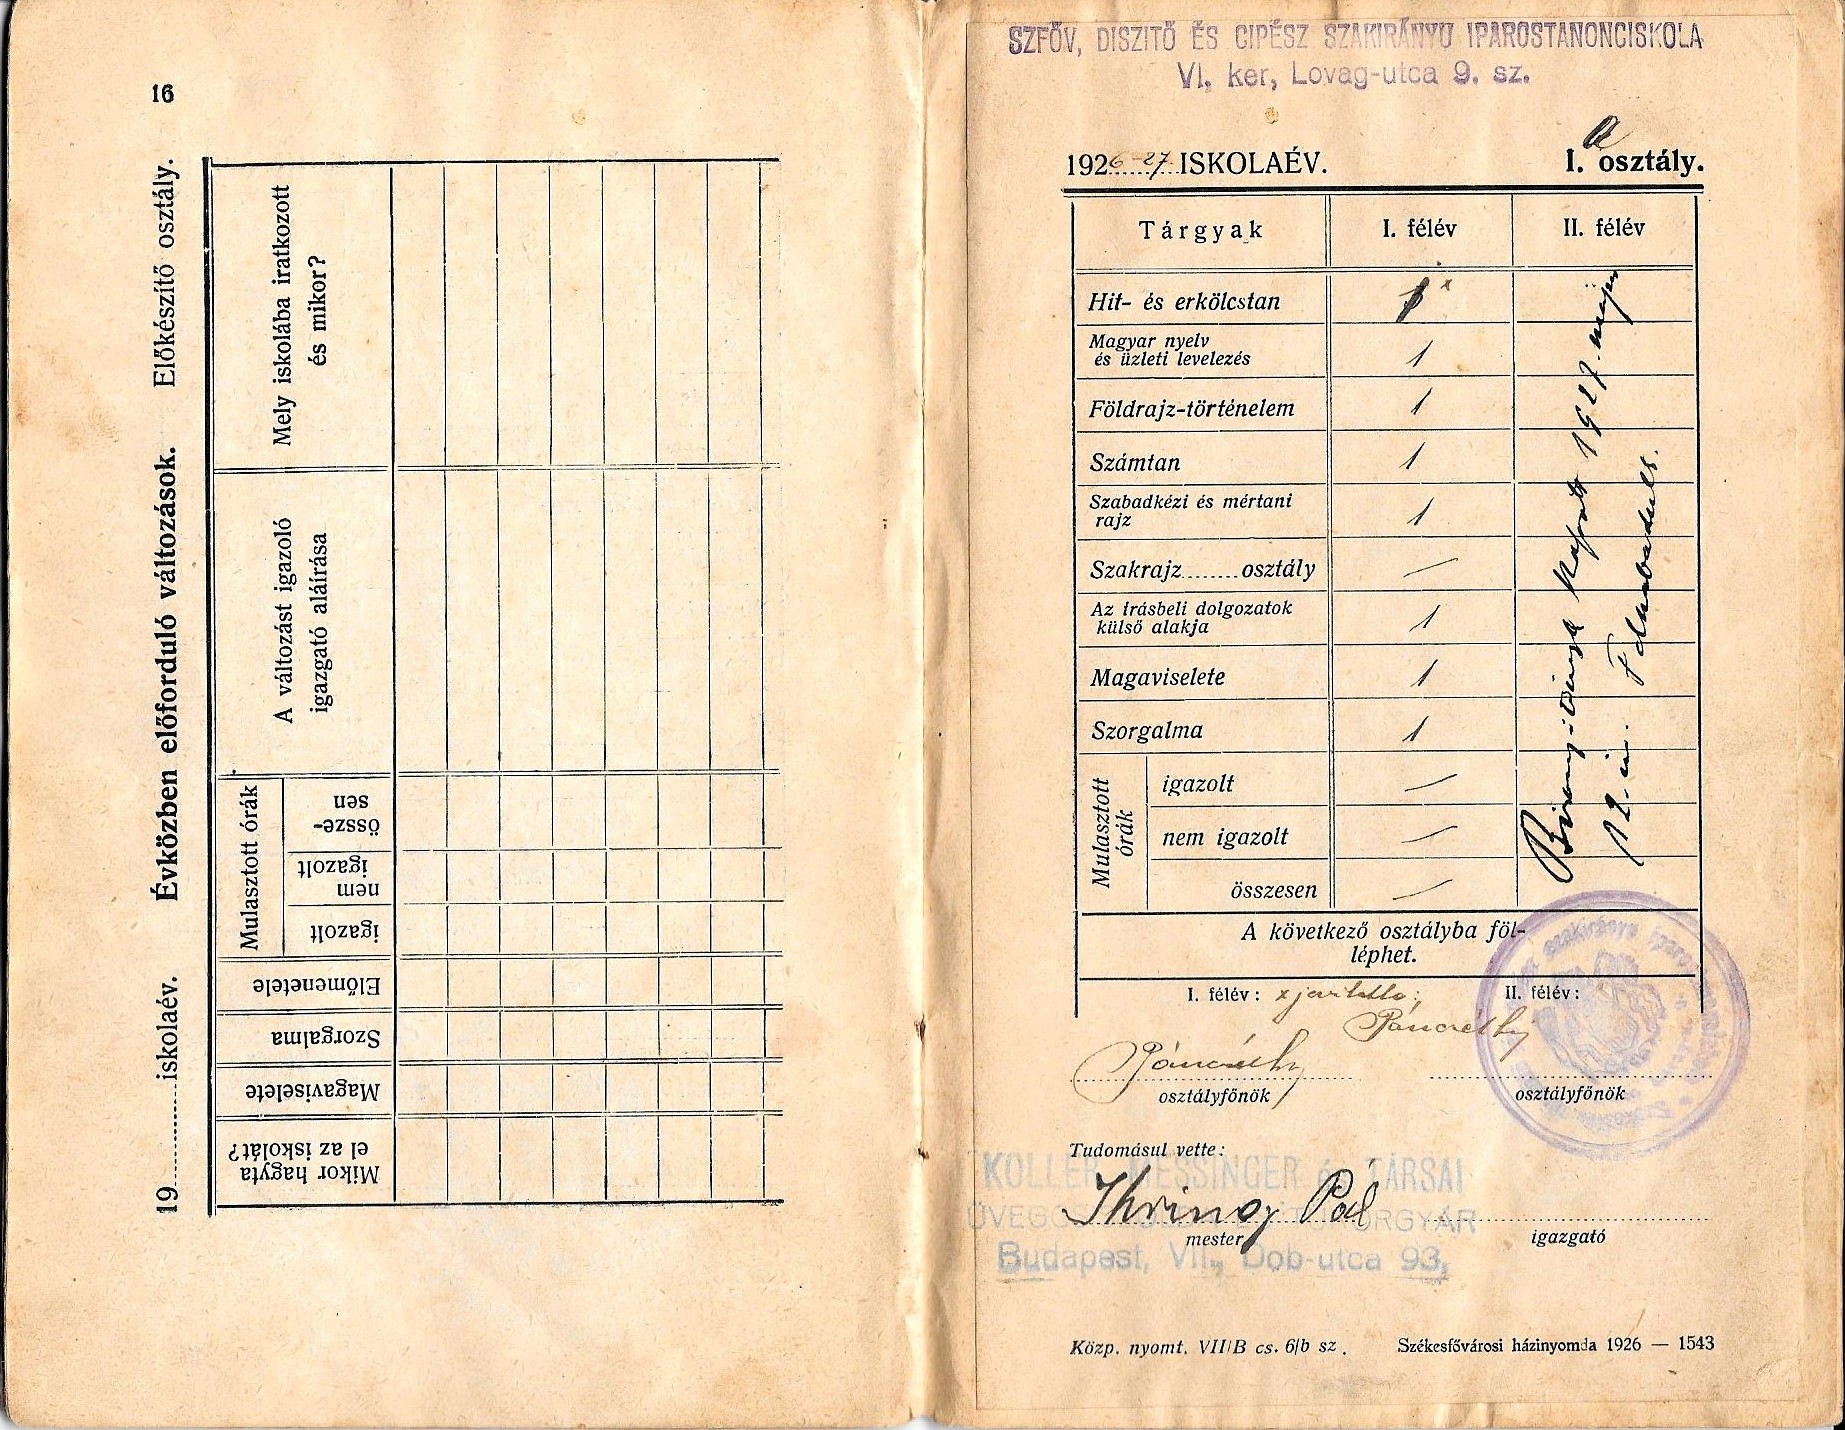 16
19 iskolaév. Évközben előforduló változások. Előkészítő osztály.
Mikor hagyta
el az iskolát?
Magaviselete
Szorgalma
Előmenetele
Mulasztott órák
igazolt
nem
igazolt
össze-
sen
A változást igazoló
igazgató aláírása
Mely iskolába iratkozott
és mikor?
SZFŐV, DISZITŐ ÉS CIPÉSZ SZAKIRÁNYU IPAROSTANONCISKOLA
VI, ker, Lovag-utca 9. sz.
1926-27 ISKOLAÉV. I. a osztály.
Tárgyak I. félév II. félév
Hit- és erkölcstan 1 x
Magyar nyelv
és üzleti levelezés 1
Földrajz-történelem 1
Számtan 1
Szabadkézi és mértani
rajz 1
Szakrajz........osztály —
Az írásbeli dolgozatok
külső alakja 1
Magaviselete 1
Szorgalma 1
Mulasztott
órák
igazolt —
nem igazolt —
összesen —
Bizonyítványt kapott 1927. május
12-én. Felszabadult.
A következő osztályba föl-
léphet.
I. félév: x javította: II. félév:
Pánczélhy
Pánczélhy
osztályfőnök osztályfőnök
Tudomásul vette:
KOLLER, MESSINGER és TÁRSAI
Ihring Pál
mester igazgató
Budapest, VII., Dob-utca 93,
Közp. nyomt. VII/B cs. 6/b sz. Székesfővárosi házinyomda 1926 — 1543